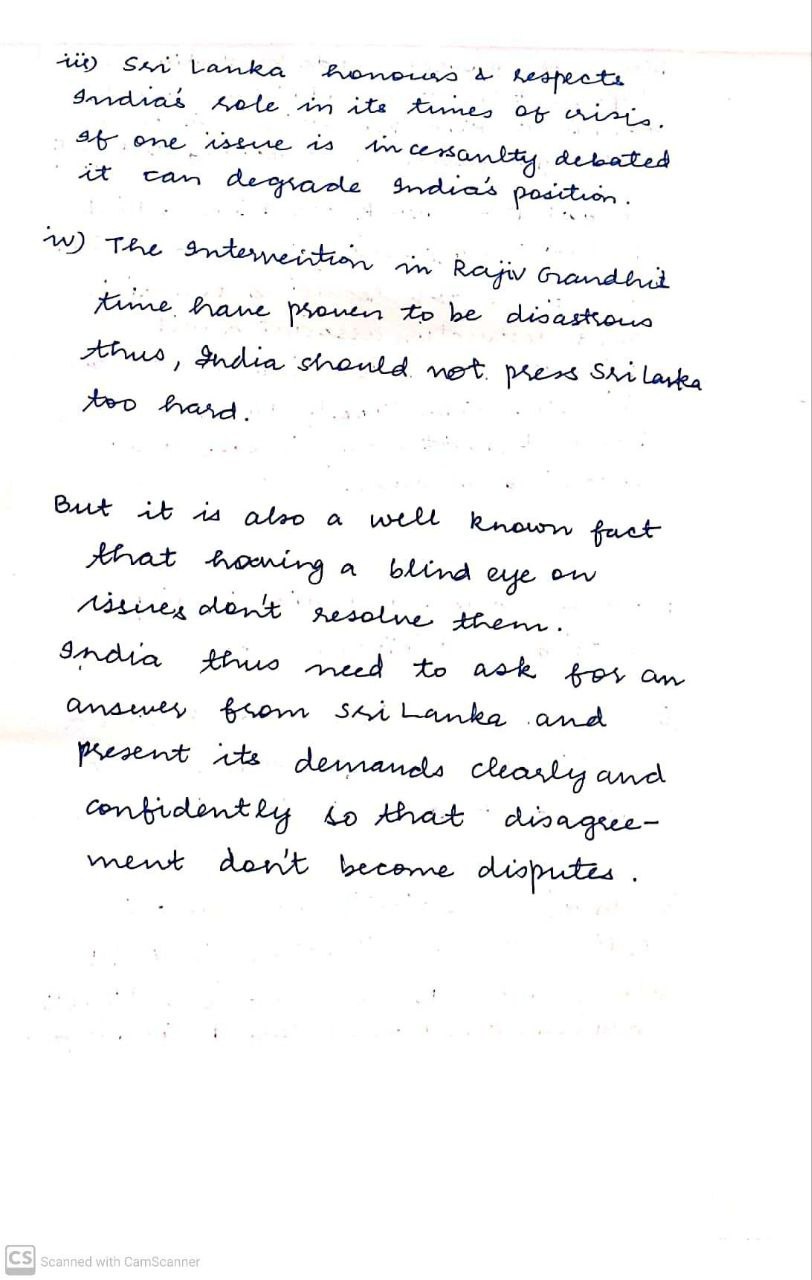 iii) Sri Lanka honours & respects
India's role in its times of crisis.
If one issue is incessanlty debated
it can degrade India's position.
iv) The Intervention in Rajiv Grandhi
time have proven to be disastrous
thus, India should not press Sri Lanka
too hard.
But it is also a well known fact
that having a blind eye on
issues don't resolve them.
India thus need to ask for an
answer from Sri Lanka and
present its demands clearly and
confidently so that disagree-
ment don't become disputes.
CS Scanned with CamScanner